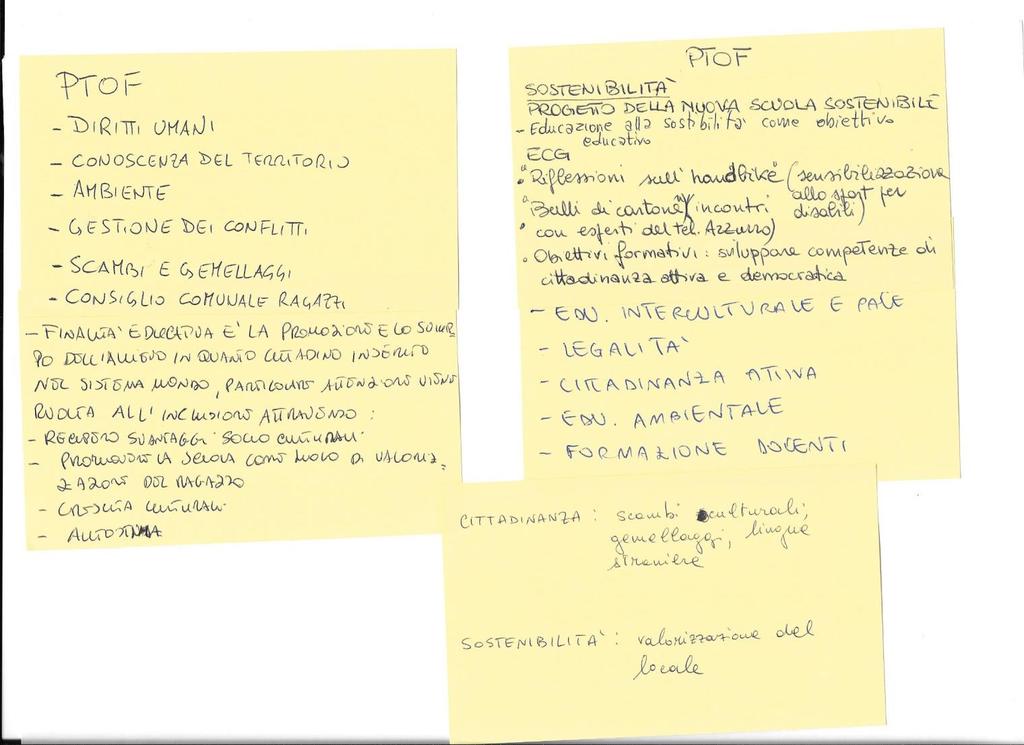 PTOF
- DIRITTI UMANI
- CONOSCENZA DEL TERRITORIO
- AMBIENTE
- GESTIONE DEI CONFLITTI
- SCAMBI E GEMELLAGGI
- CONSIGLIO COMUNALE RAGAZZI
- FINALITA' EDUCATIVA E' LA PROMOZIONE E LO SVILUP
PO DELL'ALLIEVO IN QUANTO CITTADINO INSERITO
NEL SISTEMA MONDO, PARTICOLARE ATTENZIONE VIENE
RIVOLTA ALL'INCLUSIONE ATTRAVERSO :
- RECUPERO SVANTAGGI SOCIO CULTURALI
- PROMUOVERE LA SCUOLA COME LUOGO DI VALORIZ
ZAZIONE DEL RAGAZZO
- CRESCITA CULTURALE
- AUTOSTIMA
PTOF
SOSTENIBILITÀ
PROGETTO DELLA NUOVA SCUOLA SOSTENIBILE
- Educazione alla sostibilità come obiettivo
educativo
ECG
• "Riflessioni sull'handbike" (sensibilizzazione
allo sport per
disabili)
• "Bulli di cartone" (incontri
con esperti del tel. Azzurro)
• Obiettivi formativi : sviluppare competenze di
cittadinanza attiva e democratica
- EDU. INTERCULTURALE E PACE
- LEGALITÀ
- CITTADINANZA ATTIVA
- EDU. AMBIENTALE
- FORMAZIONE DOCENTI
CITTADINANZA : scambi culturali,
gemellaggi, lingue
straniere
SOSTENIBILITÀ : valorizzazione del
locale